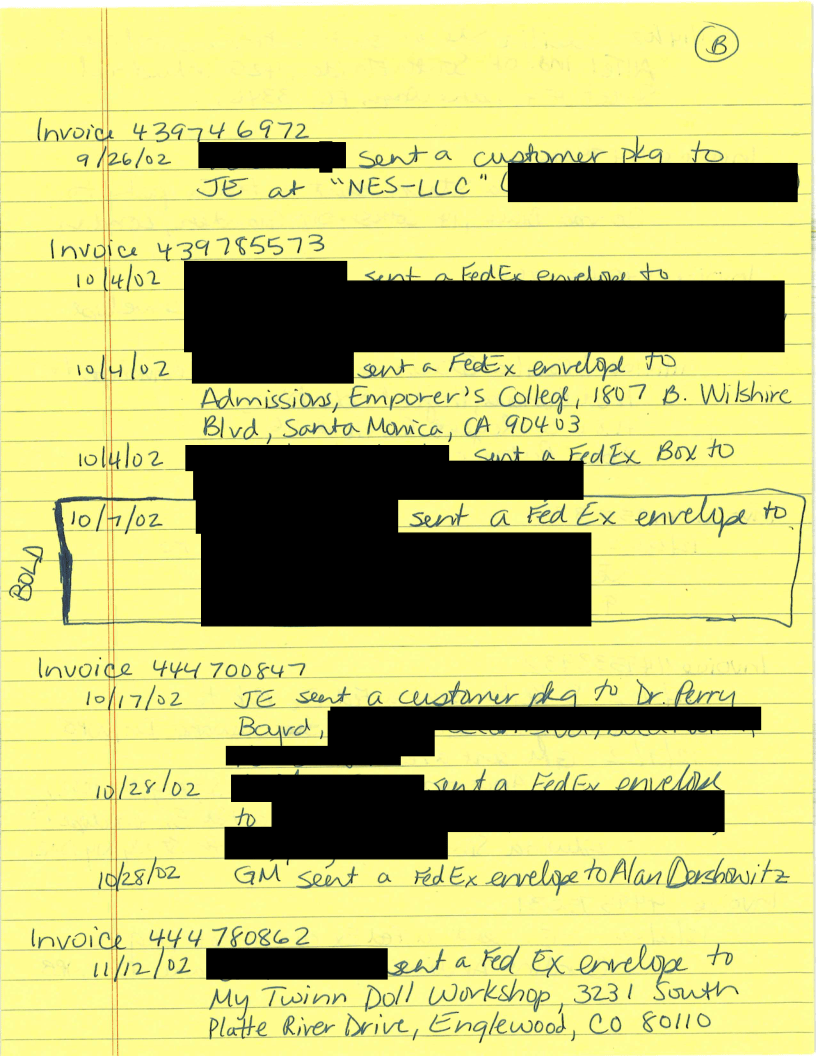 B
Invoice 439746972
9/26/02 sent a customer pkg to
JE at "NES-LLC" (
Invoice 439785573
10/4/02 sent a FedEx envelope to
10/4/02 sent a FedEx envelope to
Admissions, Emporer's College, 1807 B. Wilshire
Blvd, Santa Monica, CA 90403
10/4/02 sent a FedEx Box to
10/7/02 sent a Fed Ex envelope to
BOLD
Invoice 444700847
10/17/02 JE sent a customer pkg to Dr. Perry
Bayrd,
10/28/02 sent a FedEx envelope
to
10/28/02 GM sent a FedEx envelope to Alan Dershowitz
Invoice 444780862
11/12/02 sent a Fed Ex envelope to
My Twinn Doll Workshop, 3231 South
Platte River Drive, Englewood, CO 80110